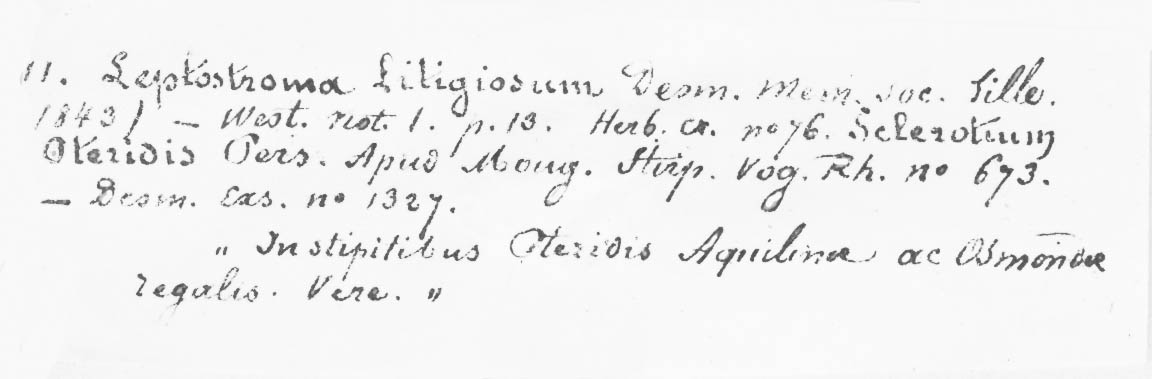 11. Leptostroma Litigiosum Desm. Mem. soc. Lille.
1843) — West. not. 1. p. 13. Herb. cr. no 76. Sclerotium
Pteridis Pers. Apud Moug. Stirp. Vog. Rh. no 673.
— Desm. Exs. no 1327.
" In stipitibus Pteridis Aquilinæ ac Osmondæ
regalis. Vere. "